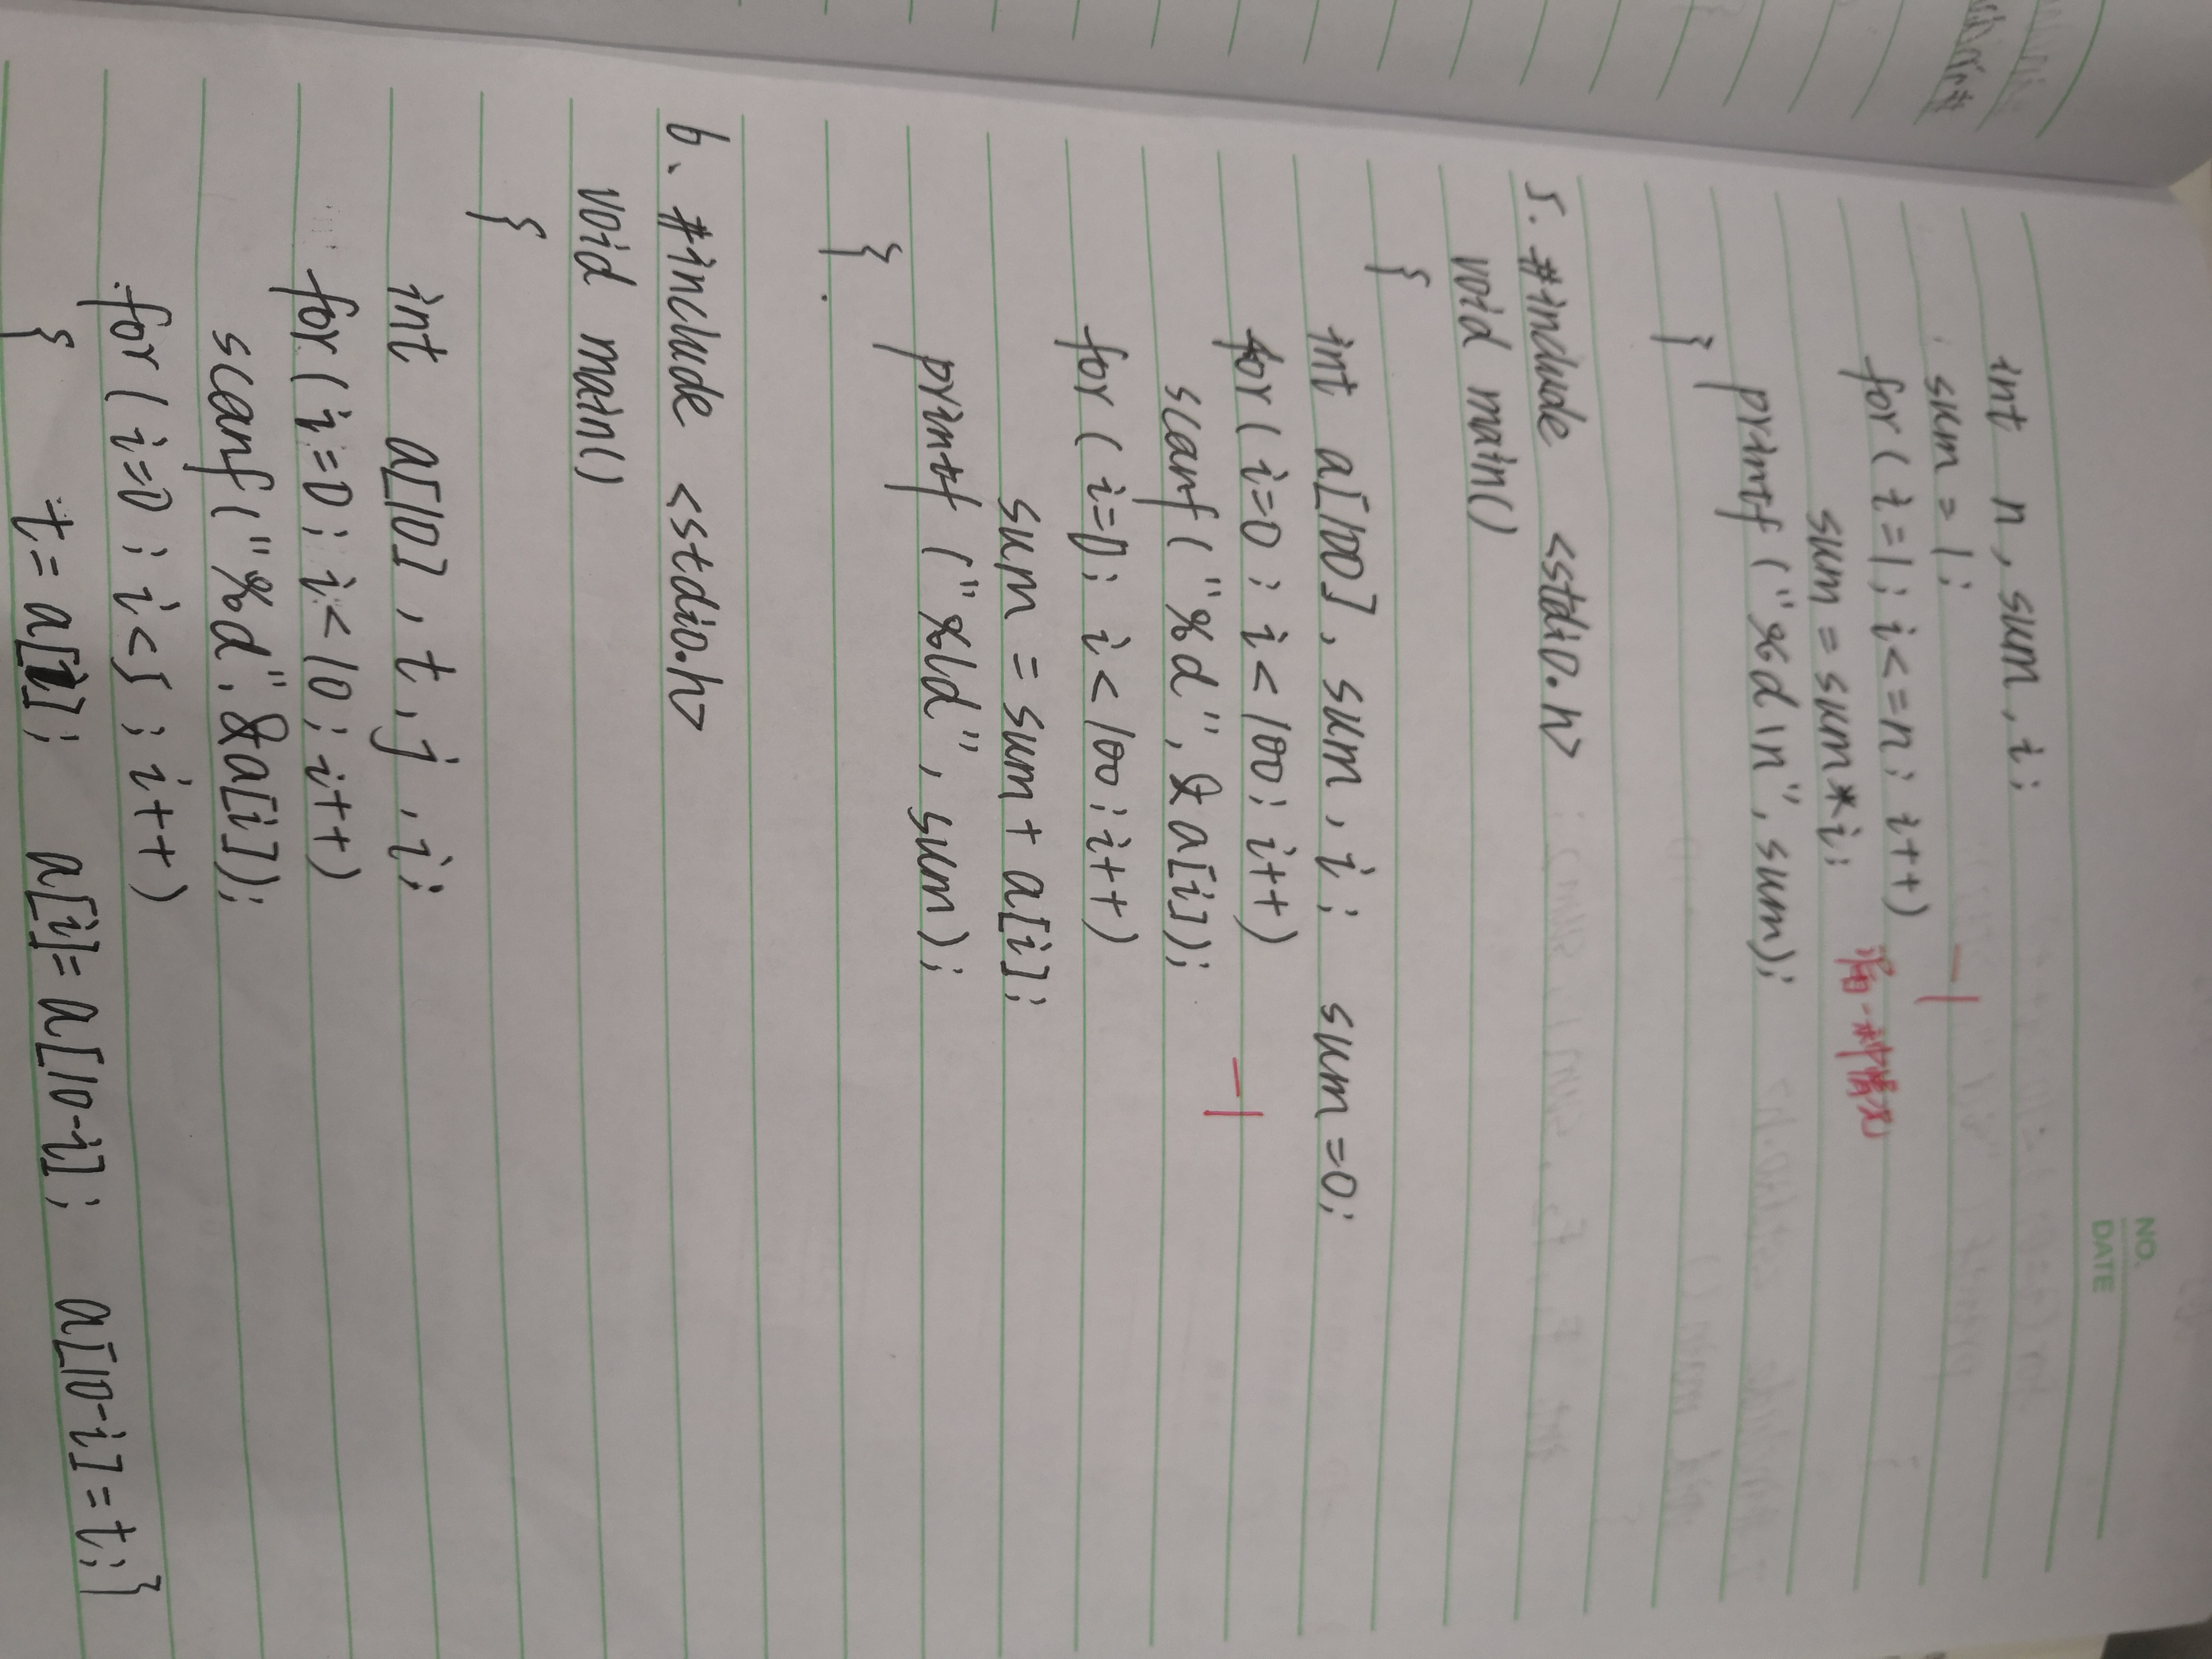 NO.
DATE
int n, sum, i;
sum = 1;
for (i=1; i<=n; i++) -1
sum = sum*i; 漏一种情况
printf ("%d\n", sum);
}
5. #include <stdio.h>
void main()
{
int a[100], sum, i; sum=0;
for (i=0; i<100; i++)
scanf ("%d", &a[i]); -1
for (i=0; i<100; i++)
sum = sum + a[i];
printf ("%ld", sum);
}
6. #include <stdio.h>
void main()
{
int a[10], t, j, i;
for (i=0; i<10; i++)
scanf ("%d", &a[i]);
for (i=0; i<5; i++)
{
t = a[i]; a[i]= a[10-i]; a[10-i]=t;}